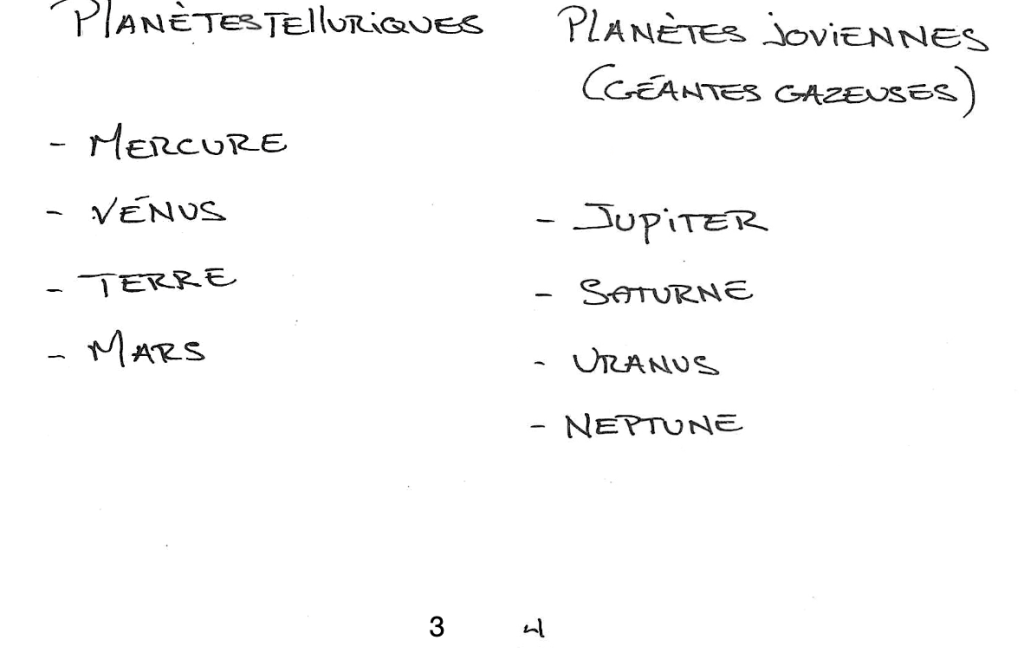 PLANÈTES TELLURIQUES
- MERCURE
- VÉNUS
- TERRE
- MARS
PLANÈTES JOVIENNES
(GÉANTES GAZEUSES)
- JUPITER
- SATURNE
- URANUS
- NEPTUNE
3